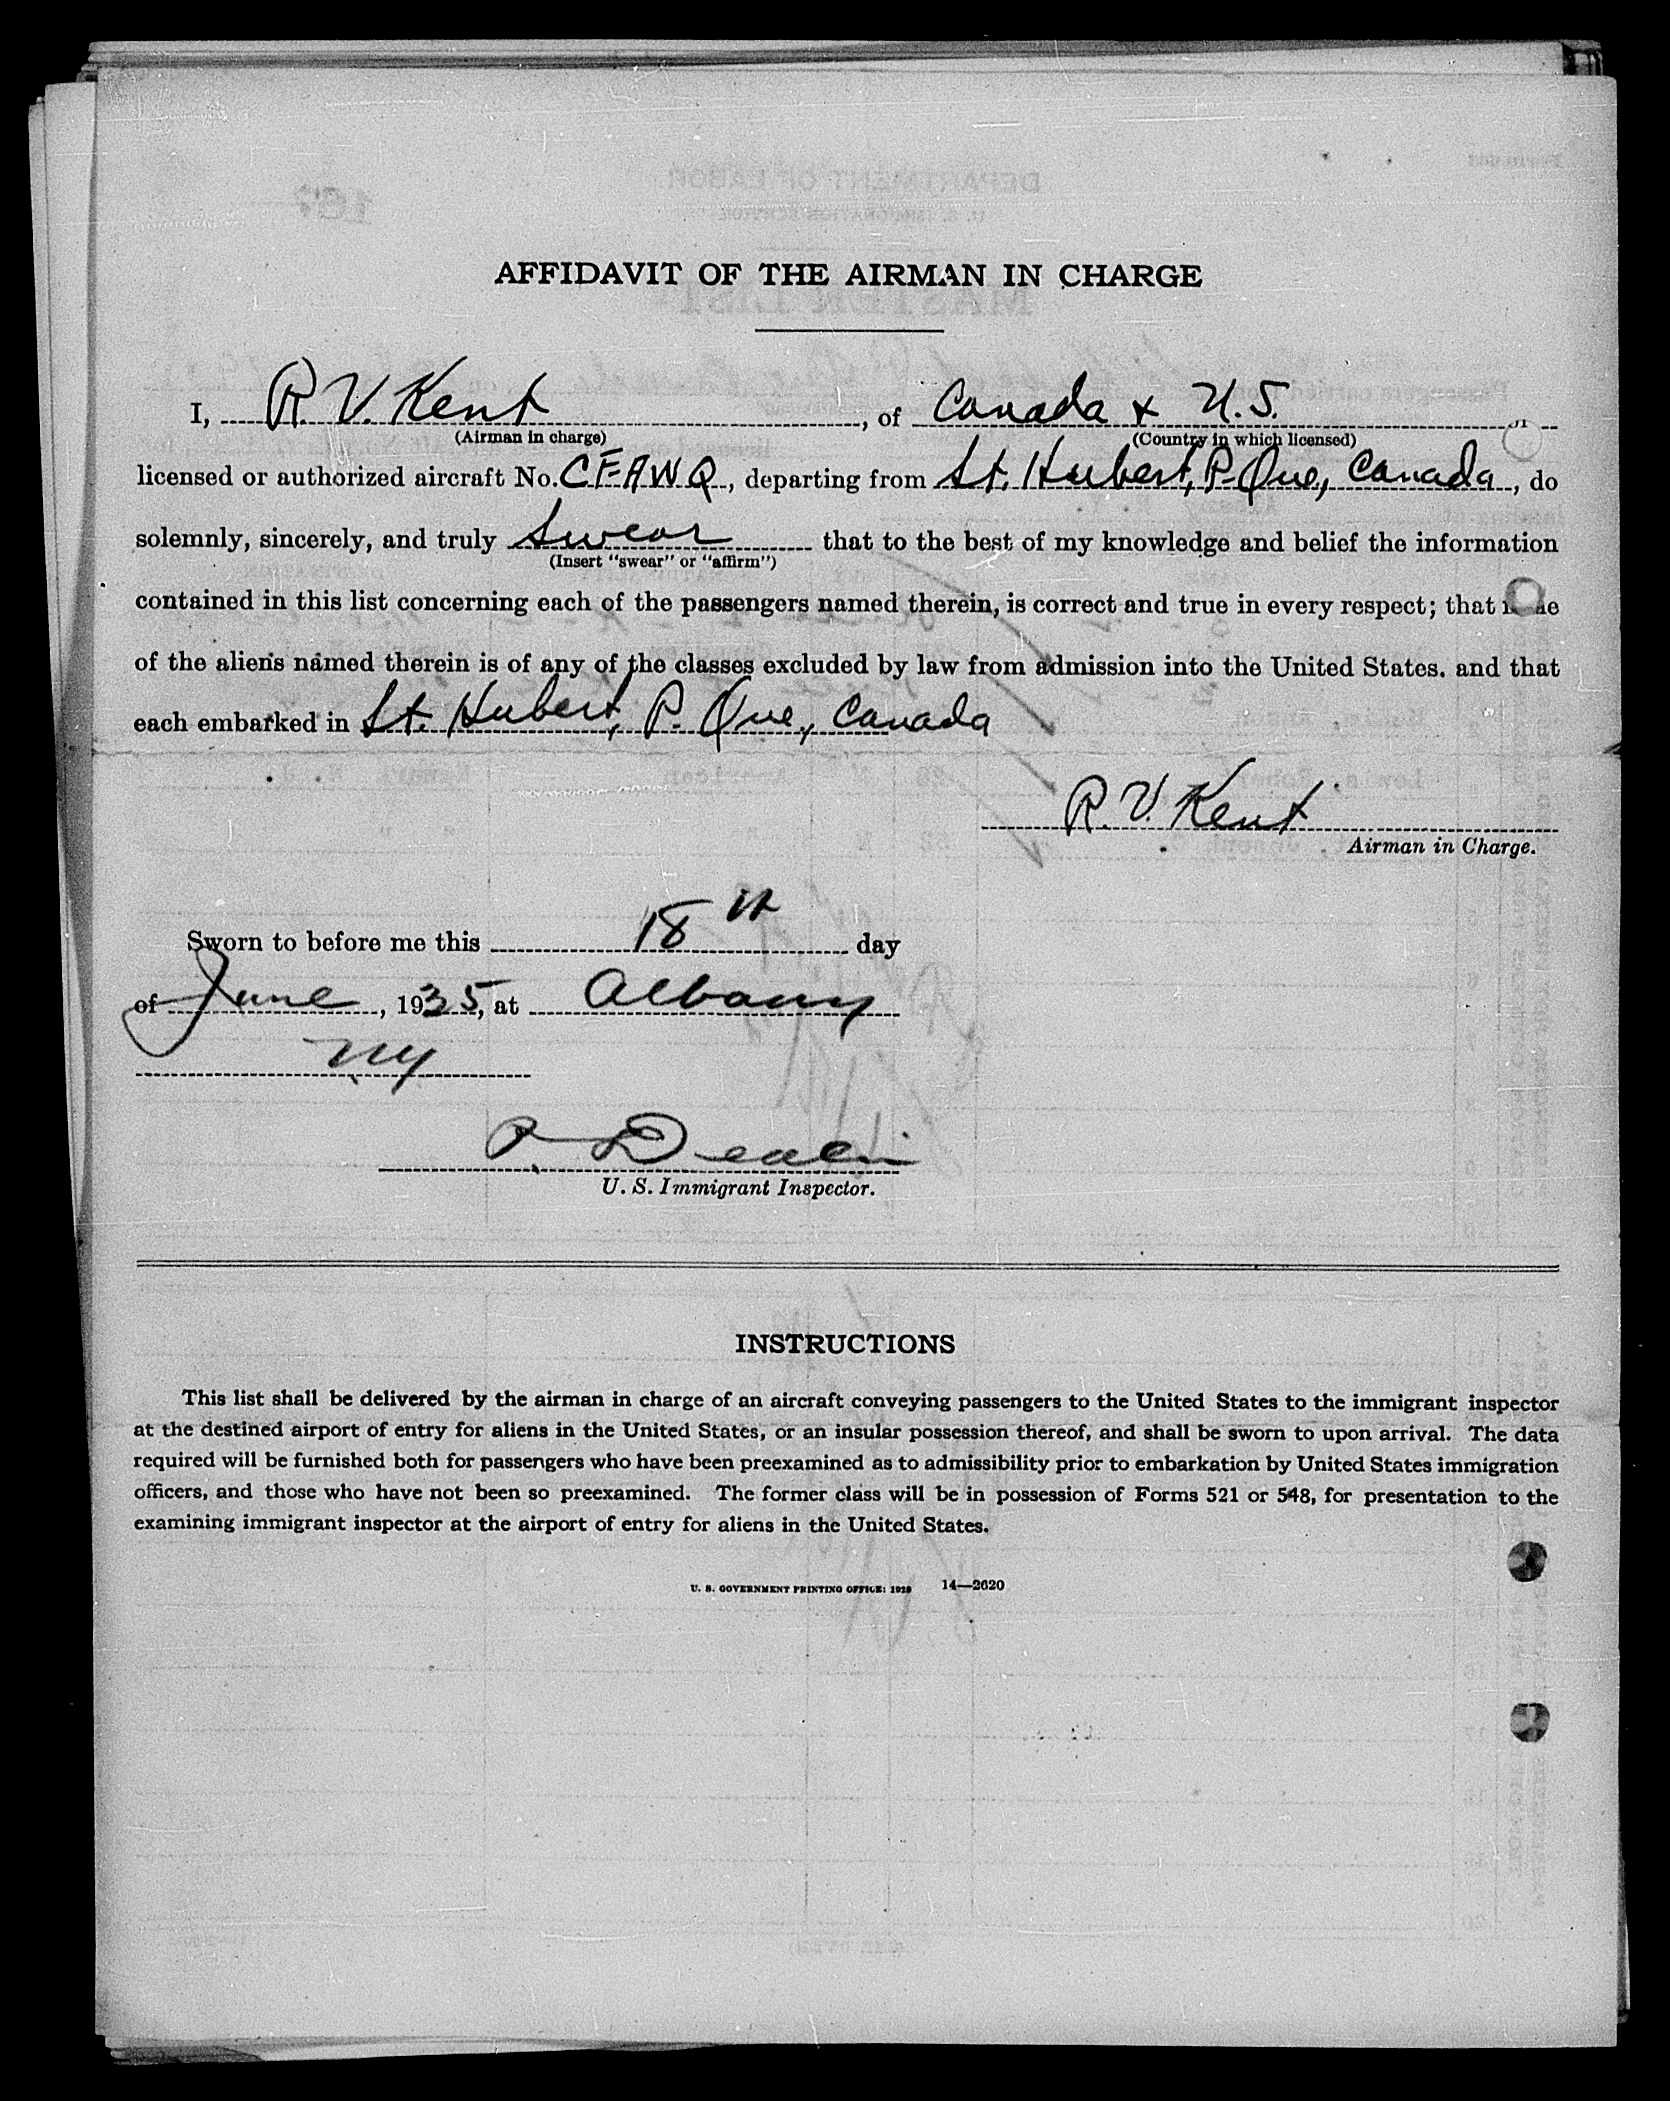 AFFIDAVIT OF THE AIRMAN IN CHARGE
I, R. V. Kent, of Canada & U.S.
(Airman in charge) (Country in which licensed)
licensed or authorized aircraft No. CFAWQ, departing from St. Hubert, P. Que., Canada, do
solemnly, sincerely, and truly swear that to the best of my knowledge and belief the information
(Insert "swear" or "affirm")
contained in this list concerning each of the passengers named therein, is correct and true in every respect; that
of the aliens named therein is of any of the classes excluded by law from admission into the United States, and that
each embarked in St. Hubert, P. Que., Canada
R. V. Kent
Airman in Charge.
Sworn to before me this 18th day
of June, 1935, at Albany
NY
U. S. Immigrant Inspector.
INSTRUCTIONS
This list shall be delivered by the airman in charge of an aircraft conveying passengers to the United States to the immigrant inspector
at the destined airport of entry for aliens in the United States, or an insular possession thereof, and shall be sworn to upon arrival. The data
required will be furnished both for passengers who have been preexamined as to admissibility prior to embarkation by United States immigration
officers, and those who have not been so preexamined. The former class will be in possession of Forms 521 or 548, for presentation to the
examining immigrant inspector at the airport of entry for aliens in the United States.
U. S. GOVERNMENT PRINTING OFFICE: 1929 14—2620